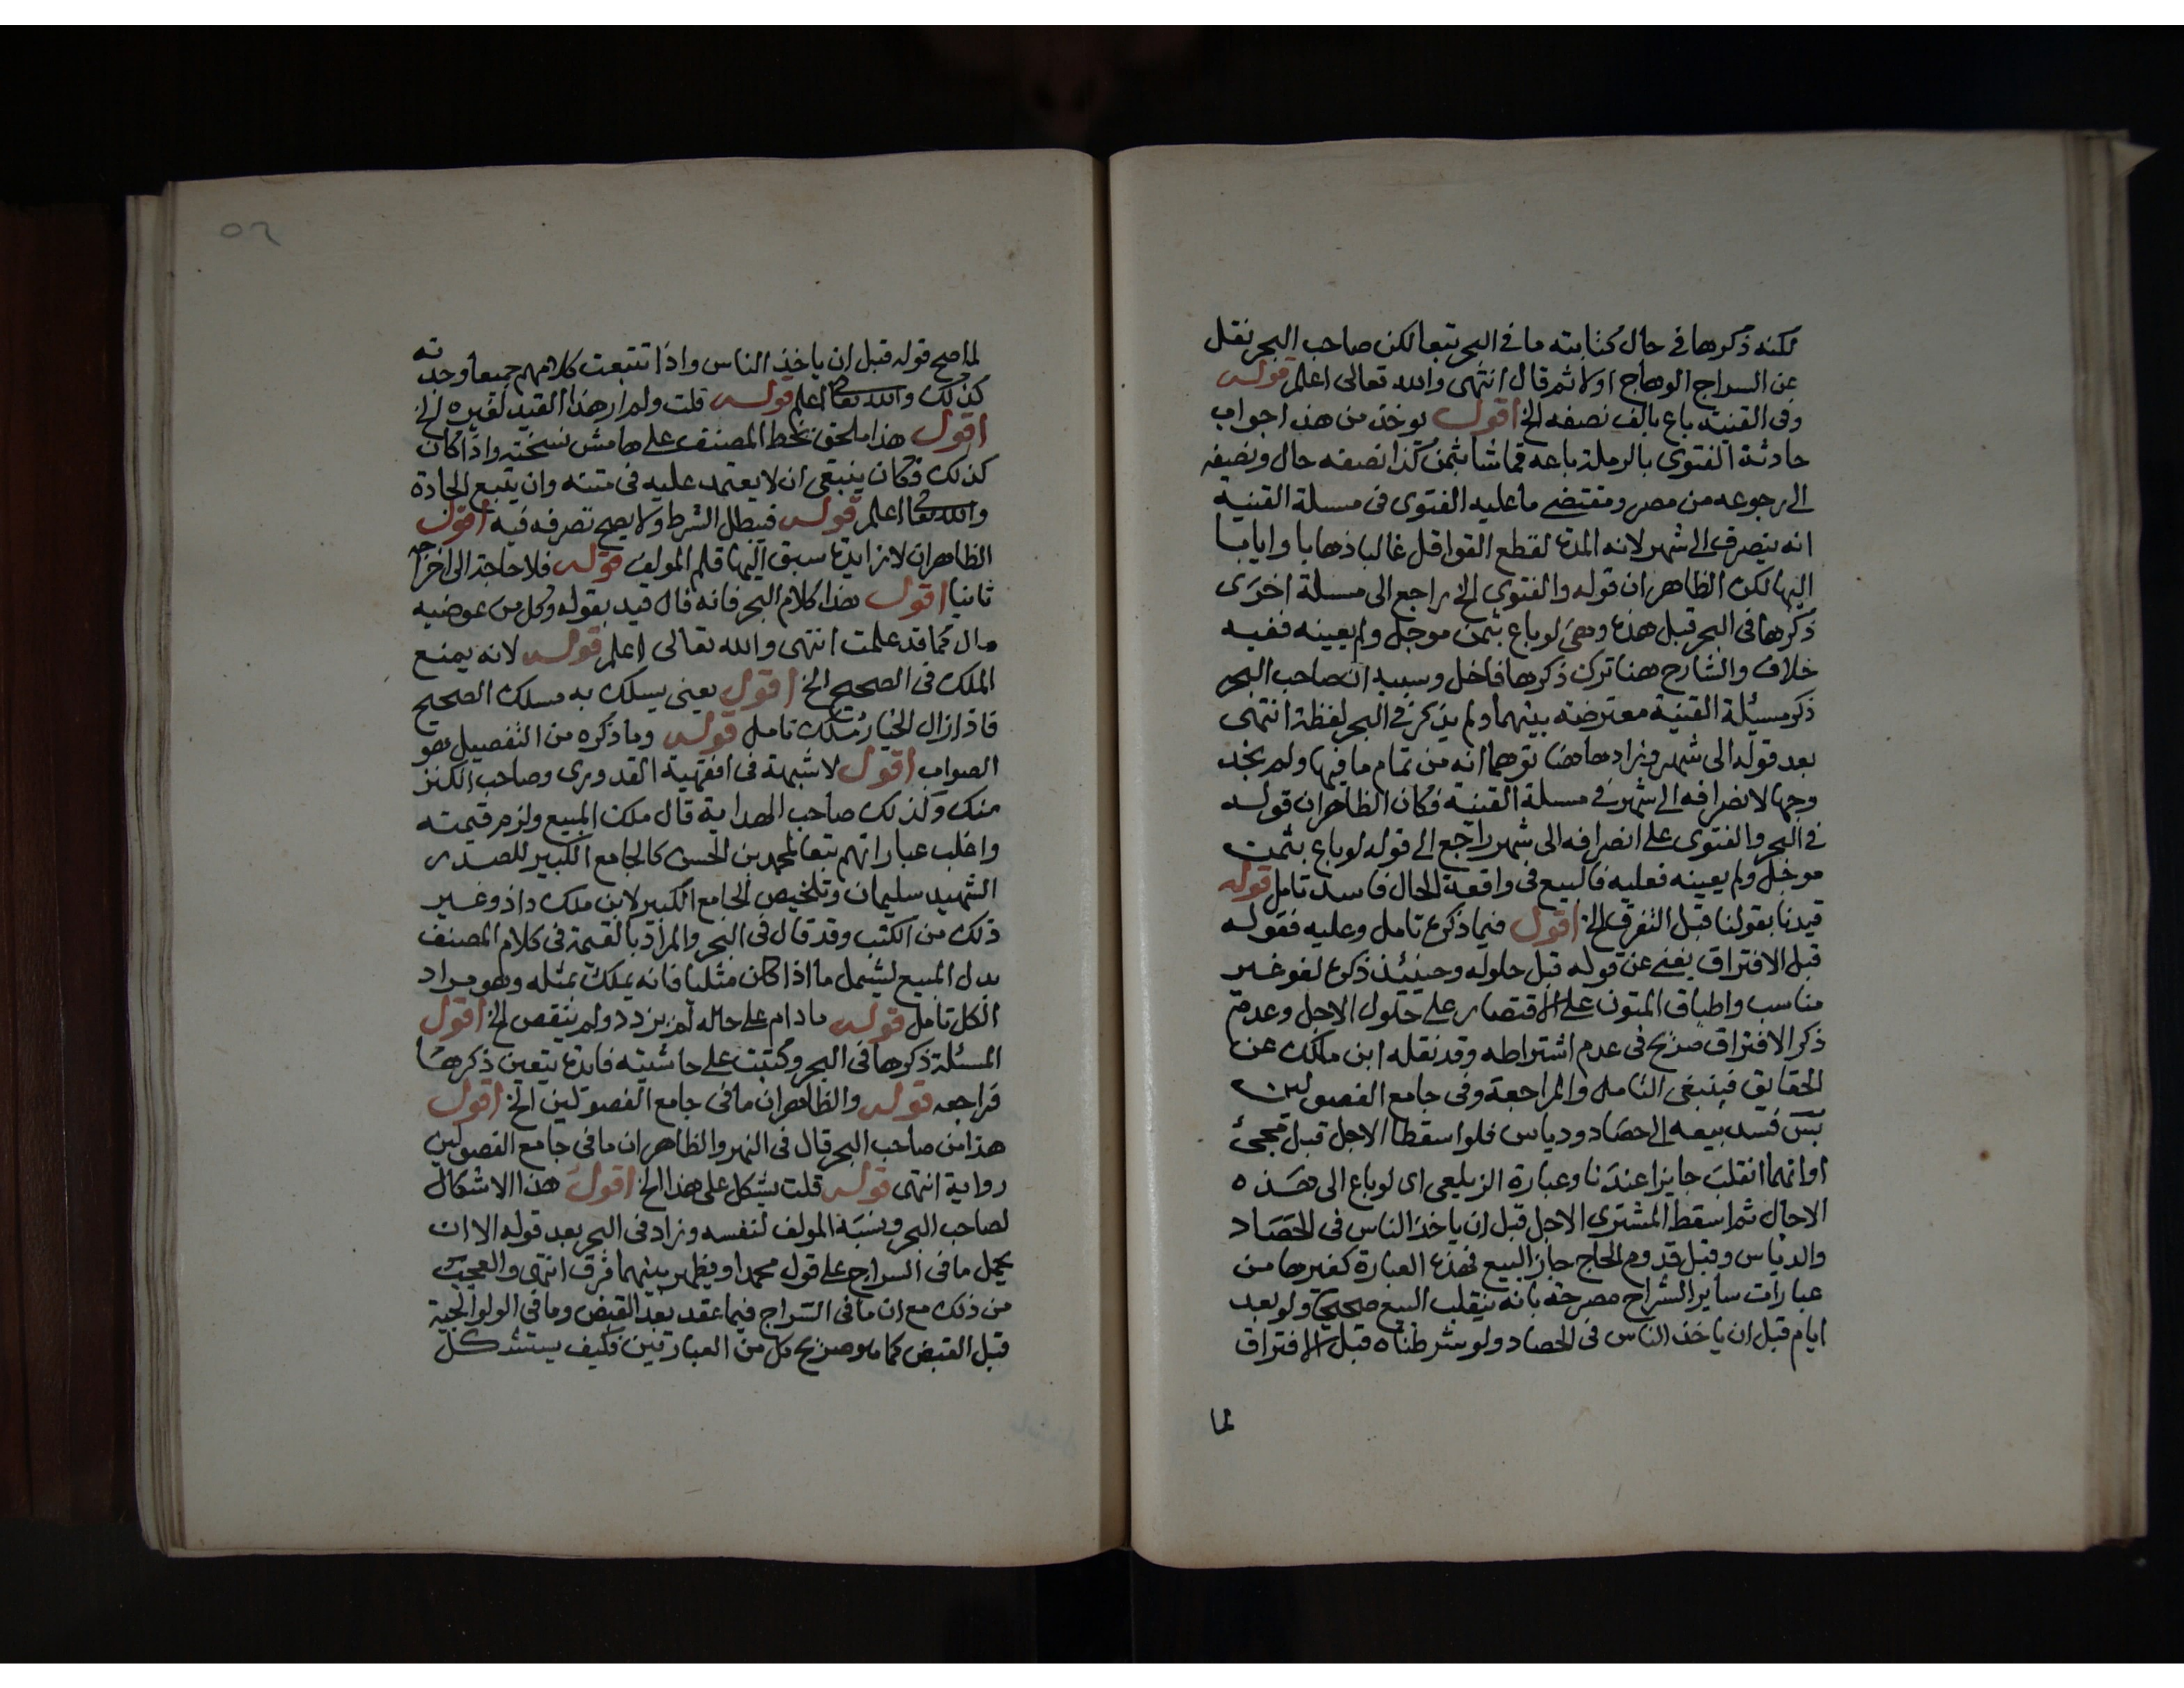 لكنه ذكرها في حال كتابته ما في البحر تبعا لكن صاحب البحر نقل
عن السراج الوهاج اولا ثم قال انتهى والله تعالى اعلم قوله
وفي القنية باع بالف نصفه الخ اقول يوخذ من هذا جواب
حادثة الفتوى بالرملة باعه قماشا بثمن كذا نصفه حال ونصفه
الى رجوعه من مصر ومقتضى ما عليه الفتوى في مسلة القنية
انه ينصرف الى شهر لانه المدة لقطع القوافل غالبا ذهابا وايابا
اليها لكن الظاهر ان قوله والفتوى الخ راجع الى مسلة اخرى
ذكرها في البحر قبل هذه وهي لو باع بثمن موجل ولم يعينه ففيه
خلاف والشارح هنا ترك ذكرها فاخل وسببه ان صاحب البحر
ذكر مسئلة القنية معترضة بينهما ولم يذكر في البحر لفظة انتهى
بعد قوله الى شهر فزادها هنا توهما انه من تمام ما فيها ولم نجد
وجها لانصرافه الى شهر في مسلة القنية فكان الظاهر ان قوله
في البحر والفتوى على انصرافه الى شهر راجع الى قوله لو باع بثمن
موجل ولم يعينه فعليه فالبيع في واقعة الحال فاسد تامل قوله
قيدنا بقولنا قبل التفرق الخ اقول فيما ذكره تامل وعليه فقوله
قبل الافتراق يغني عن قوله قبل حلوله وحينئذ ذكره لغو غير
مناسب واطباق المتون على الاقتصار على حلول الاجل وعدم
ذكر الافتراق صريح في عدم اشتراطه وقد نقله ابن ملك عن
الحقايق فينبغي التامل والمراجعة وفي جامع الفصولين
بس فسد بيعه الى حصاد ودياس فلو اسقطا الاجل قبل مجئ
اوانهما انقلب جايزا عندنا وعبارة الزيلعي اى لو باع الى هذه
الاجال ثم اسقط المشترى الاجل قبل ان ياخذ الناس في الحصاد
والدياس وقبل قدوم الحاج جاز البيع فهذه العبارة كغيرها من
عبارات ساير الشراح مصرحة بانه ينقلب البيع صحيحا ولو بعد
ايام قبل ان ياخذ الناس في الحصاد ولو شرطناه قبل الافتراق
لما
٥٢
لما صح قوله قبل ان ياخذ الناس واذا تتبعت كلامهم جميعا وجدته
كذلك والله تعالى اعلم قوله قلت ولم ار هذا القيد لغيره الخ
اقول هذا ملحق بخط المصنف على هامش نسخته واذا كان
كذلك فكان ينبغي ان لا يعتمد عليه في متنه وان يتبع الجادة
والله تعالى اعلم قوله فيبطل الشرط ولا يصح تصرفه فيه اقول
الظاهر ان لا زايدة سبق اليها قلم المولف قوله فلا حاجة الى اخراجه
ثانيا اقول هذا كلام البحر فانه قال قيد بقوله وكل من عوضيه
مال كما قد علمت انتهى والله تعالى اعلم قوله لانه يمنع
الملك في الصحيح الخ اقول يعني يسلك به مسلك الصحيح
فاذا زال الخيار ملك تامل قوله وما ذكره من التفصيل هو
الصواب اقول لا شبهة في افقهية القدورى وصاحب الكنز
منك وكذلك صاحب الهداية قال ملك المبيع ولزم قيمته
واغلب عباراتهم تبعا لمحمد بن الحسن كالجامع الكبير للصدر
الشهيد سليمان وتلخيص الجامع الكبير لابن ملك داذ وغير
ذلك من الكتب وقد قال في البحر والمراد بالقيمة في كلام المصنف
بدل المبيع ليشمل ما اذا كان مثليا فانه يملك بمثله وهو مراد
الكل تامل قوله مادام على حاله لم يزدد ولم ينتقص الخ اقول
المسئلة ذكرها في البحر وكتبت على حاشيته فايدة يتعين ذكرها
فراجعه قوله والظاهر ان ما في جامع الفصولين الخ اقول
هذا من صاحب البحر قال في النهر والظاهر ان ما في جامع الفصولين
رواية انتهى قوله قلت يشكل على هذا الخ اقول هذا الاشكال
لصاحب البحر ونسبة المولف لنفسه وزاد في البحر بعد قوله الا ان
يحمل ما في السراج على قول محمد او يظهر بينهما فرق انتهى والعجب
من ذلك مع ان ما في السراج فيما عقد بعد القبض وما في الولوالجية
قبل القبض كما هو صريح كل من العبارتين فكيف يستشكل